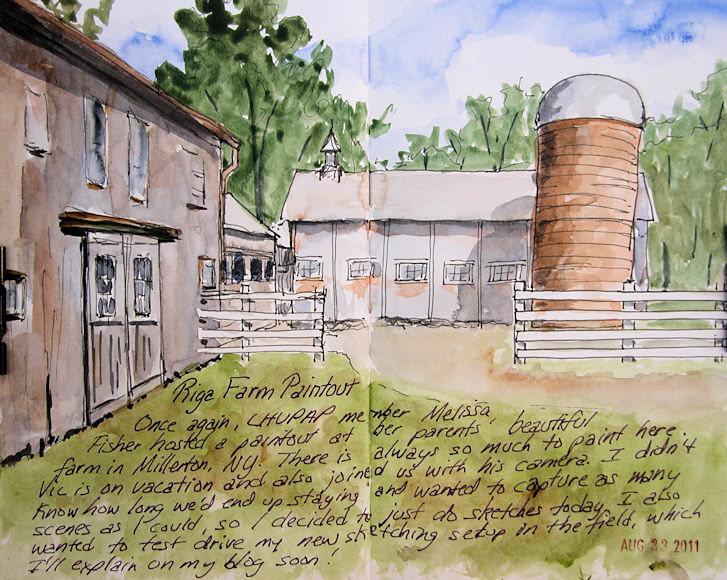 Riga Farm Paintout
Once again, LHVPAP member Melissa
Fisher hosted a paintout at her parents' beautiful
farm in Millerton, NY. There is always so much to paint here.
Vic is on vacation and also joined us with his camera. I didn't
know how long we'd end up staying and wanted to capture as many
scenes as I could, so I decided to just do sketches today. I also
wanted to test drive my new sketching setup in the field, which
I'll explain on my blog soon!
AUG 23 2011